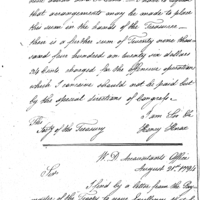 that arrangements may be made to place
this sum in the hands of the Treasurer
there is a further sum of Twenty nine thou
sand four hundred and twenty six dollars
cents charged for the offensive operations
which I conceive should not be paid but
by the special directions of Congress.
I am Sir &c
The Secy of the Treasury
Henry Knox
W.D. Accountants Office
August 21st 1794
Sir
I find by a letter from the Pay
master of the Troops to